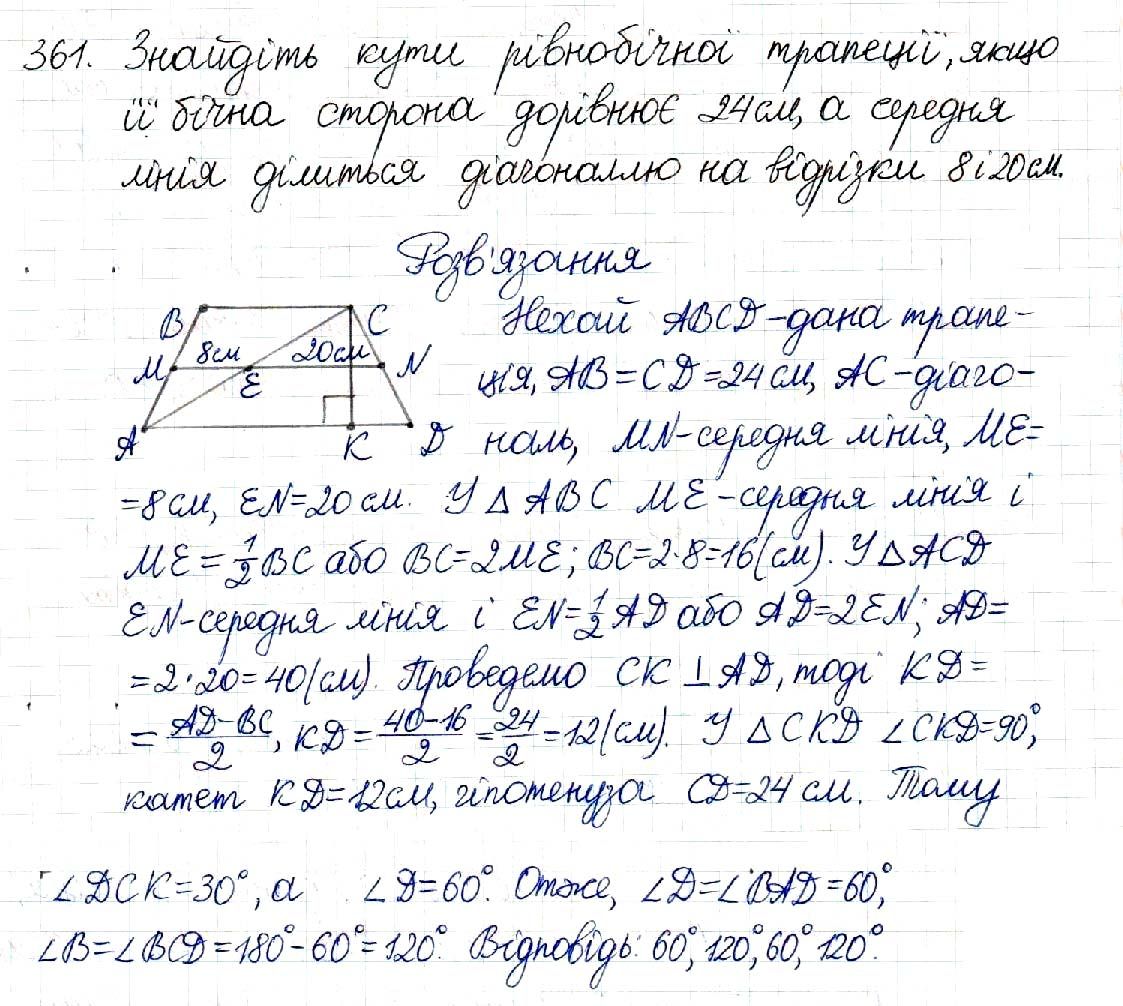 361. Знайдіть кути рівнобічної трапеції, якщо
її бічна сторона дорівнює 24 см, а середня
лінія ділиться діагоналлю на відрізки 8 і 20 см.
Розв'язання
B C
M 8см 20см N
E
A K D
Нехай ABCD – дана трапе-
ція, AB = CD = 24 см, AC – діаго-
наль, MN – середня лінія, ME =
= 8 см, EN = 20 см. У △ ABC ME – середня лінія і
ME = 1/2 BC або BC = 2ME; BC = 2·8 = 16 (см). У △ ACD
EN – середня лінія і EN = 1/2 AD або AD = 2EN; AD =
= 2·20 = 40 (см). Проведемо CK ⊥ AD, тоді KD =
= (AD – BC)/2, KD = (40 – 16)/2 = 24/2 = 12 (см). У △ CKD ∠CKD = 90°,
катет KD = 12 см, гіпотенуза CD = 24 см. Тому
∠DCK = 30°, а ∠D = 60°. Отже, ∠D = ∠BAD = 60°,
∠B = ∠BCD = 180° – 60° = 120°. Відповідь: 60°, 120°, 60°, 120°.